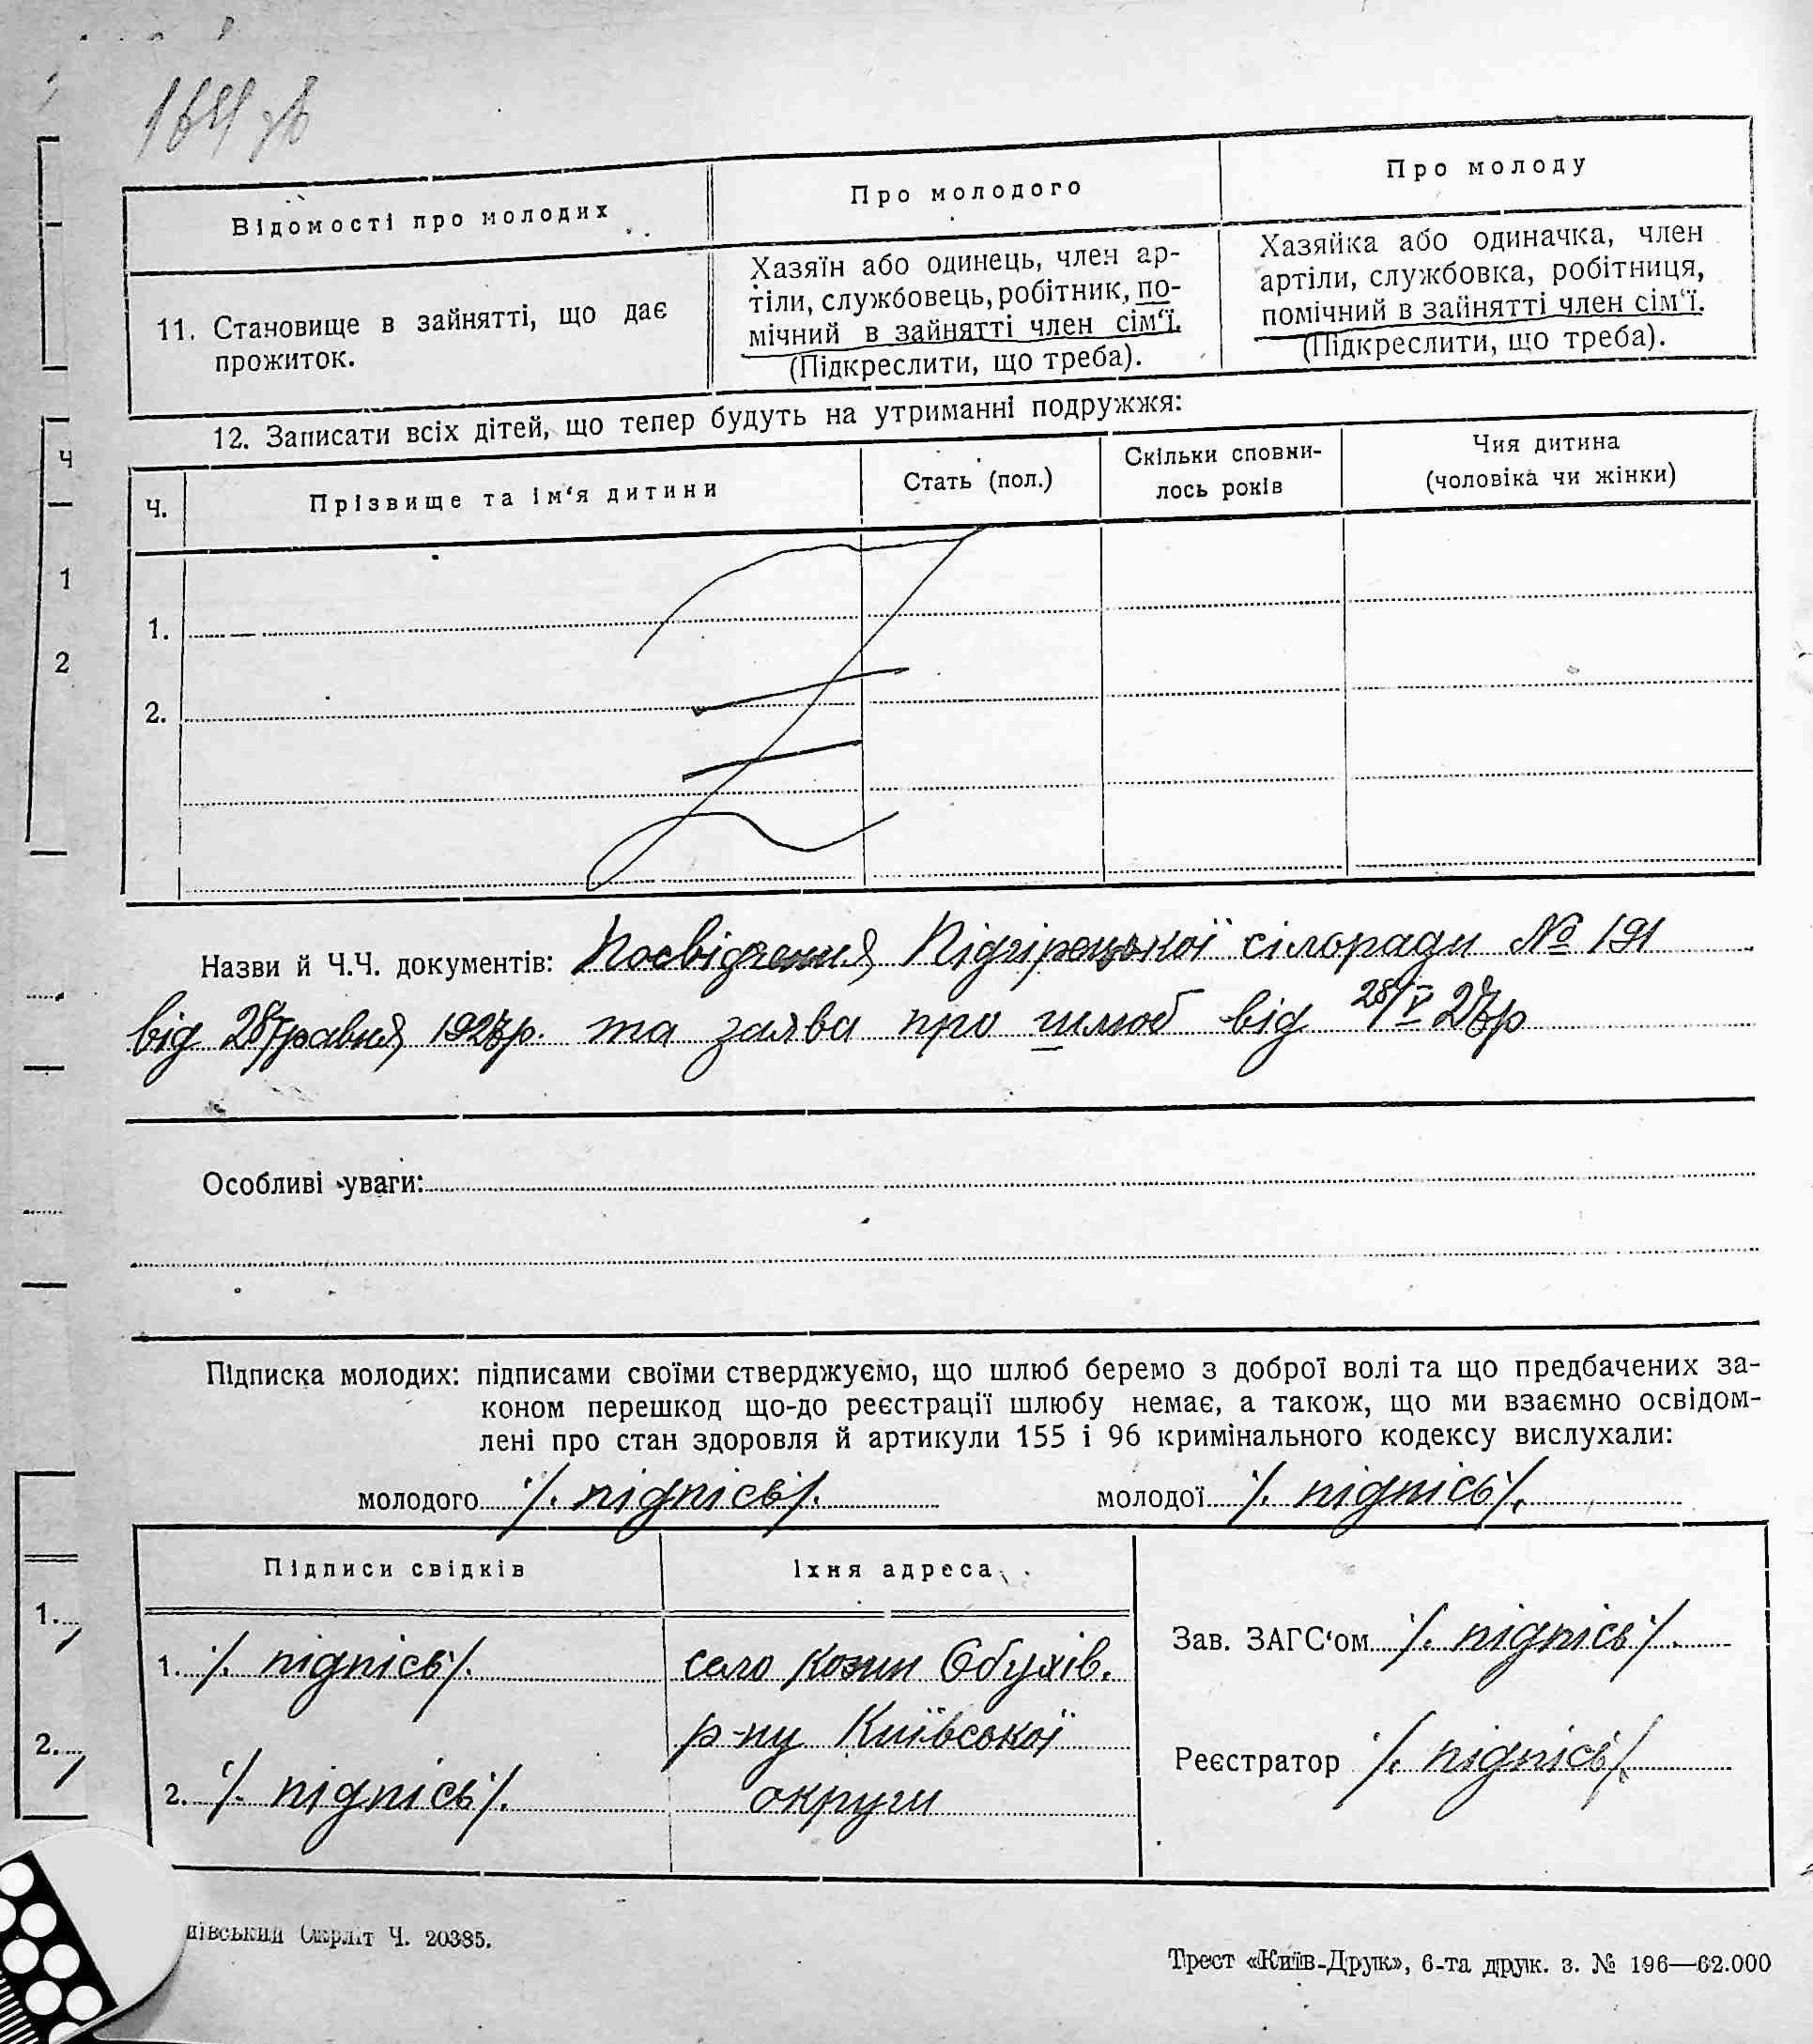 164 зв
Відомості про молодих
Про молодого
Про молоду
11. Становище в зайнятті, що дає
прожиток.
Хазяїн або одинець, член ар-
тіли, службовець, робітник, по-
мічний в зайнятті член сім‘ї.
(Підкреслити, що треба).
Хазяйка або одиначка, член
артіли, службовка, робітниця,
помічний в зайнятті член сім‘ї.
(Підкреслити, що треба).
12. Записати всіх дітей, що тепер будуть на утриманні подружжя:
Ч.
Прізвище та ім‘я дитини
Стать (пол.)
Скільки сповни-
лось років
Чия дитина
(чоловіка чи жінки)
1.
2.
Назви й Ч.Ч. документів: Посвідчення Підгірецької сілоради № 191
від 28 травня 1927р. та заява про шлюб від 28/V 27р
Особливі уваги:
Підписка молодих: підписами своїми стверджуємо, що шлюб беремо з доброї волі та що предбачених за-
коном перешкод що-до реєстрації шлюбу немає, а також, що ми взаємно освідом-
лені про стан здоровля й артикули 155 і 96 кримінального кодексу вислухали:
молодого ⁒ підпісь ⁒ молодої ⁒ підпісь ⁒
Підписи свідків
Їхня адреса
1. ⁒ підпісь ⁒
2. ⁒ підпісь ⁒
село Козин Обухів.
р-ну Київської
округи
Зав. ЗАГС‘ом ⁒ підпісь ⁒
Реєстратор ⁒ підпісь ⁒
Ч
1
2
1.
2.
иївський Окрліт Ч. 20385.
Трест «Київ-Друк», 6-та друк. з. № 196—62.000